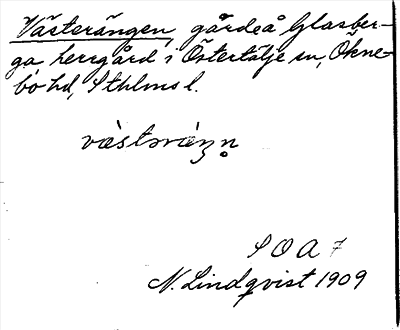 Västerängen, gärde å Glasber-
ga herrgård i Östertälje sn, Ökne-
bo hd, Sthlms l.
S O A 7
N. Lindqvist 1909